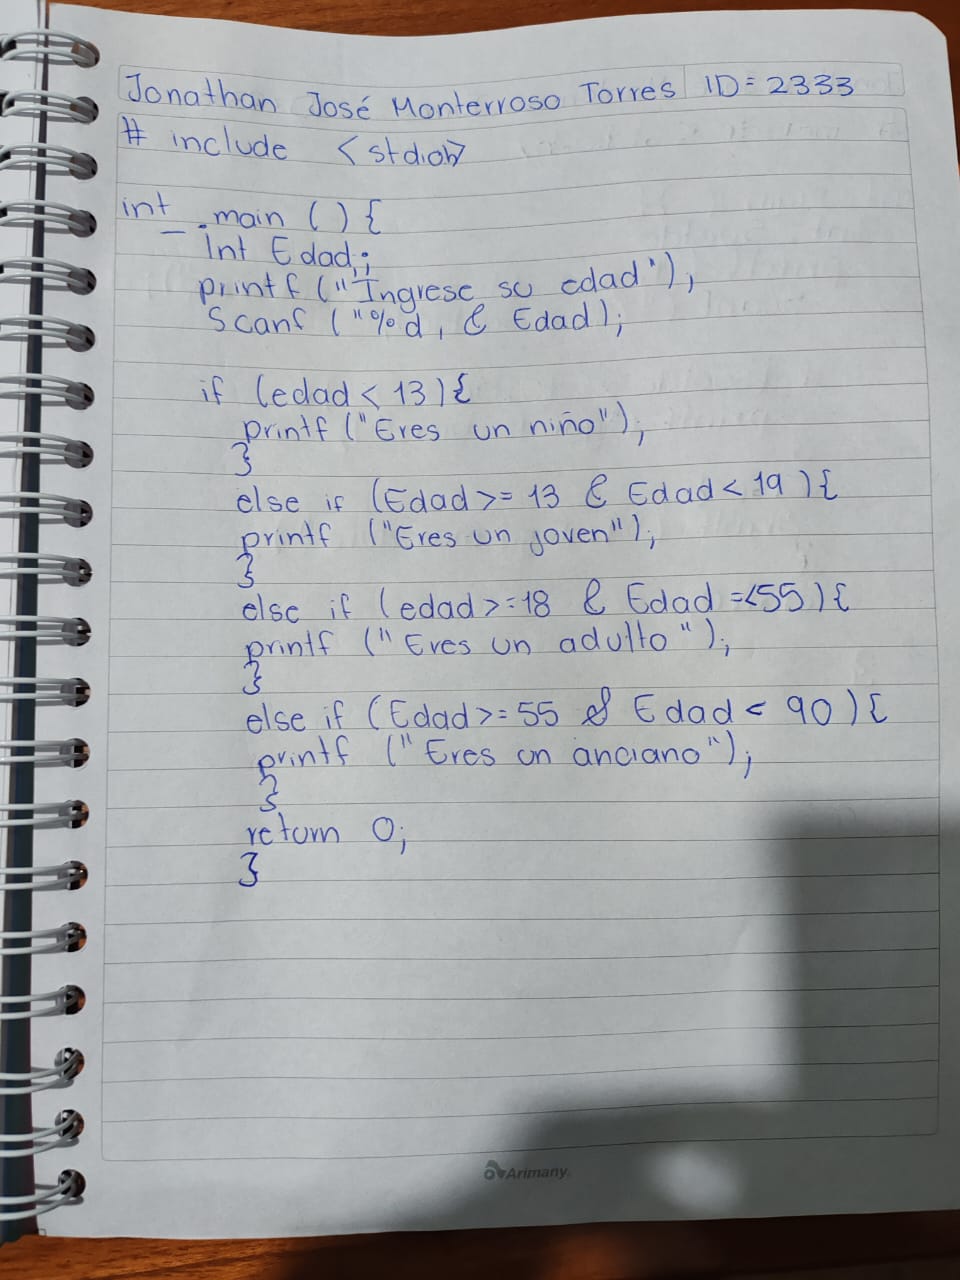 Jonathan José Monterroso Torres ID=2333
# include <stdioh>
int main () {
int Edad;
printf ("Ingrese su edad");
Scanf ("%d, & Edad);
if (edad < 13) {
printf ("Eres un niño");
}
else if (Edad >= 13 & Edad < 19) {
printf ("Eres un joven");
}
else if (edad >= 18 & Edad =<55) {
printf ("Eres un adulto");
}
else if (Edad >= 55 & Edad < 90) {
printf ("Eres un anciano");
}
return 0;
}
Arimany